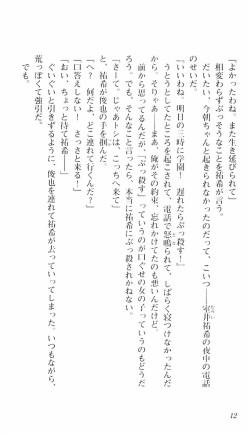 「よかったわね。また生き延びられて」
相変わらずぶっそうなことを祐希が言う。
だいたい、今朝ちゃんと起きられなかったのだって、こいつ――室井祐希の夜中の電話
からだ。
「いいわね、明日の三時に学園！　遅れたらぶっ殺す！」
とうとしてたところを起こされて、電話で怒鳴られて、しばらく寝つけなかったんだ
から。そりゃあ、まあ、俺がその約束、忘れかけてたのも悪いんだけど。
前から思ってるんだが、「ぶっ殺す」っていうのが口ぐせの女の子っていうのもどうだ
ろう。でも、そんなこと言ったら、本当に祐希にぶっ殺されかねない。
「さーて。じゃあトシは、こっちへ来て」
祐希が俊也の手を掴んだ。
「へ？　何だよ、どこ連れて行くんだ？」
「口答えしない！　さっさと来る！」
「おい、ちょっと待て祐希――」
ぐいぐいと引きずるように、俊也を連れて祐希が去っていってしまう。いつもながら、
荒っぽくて強引だ。
でもな。
12